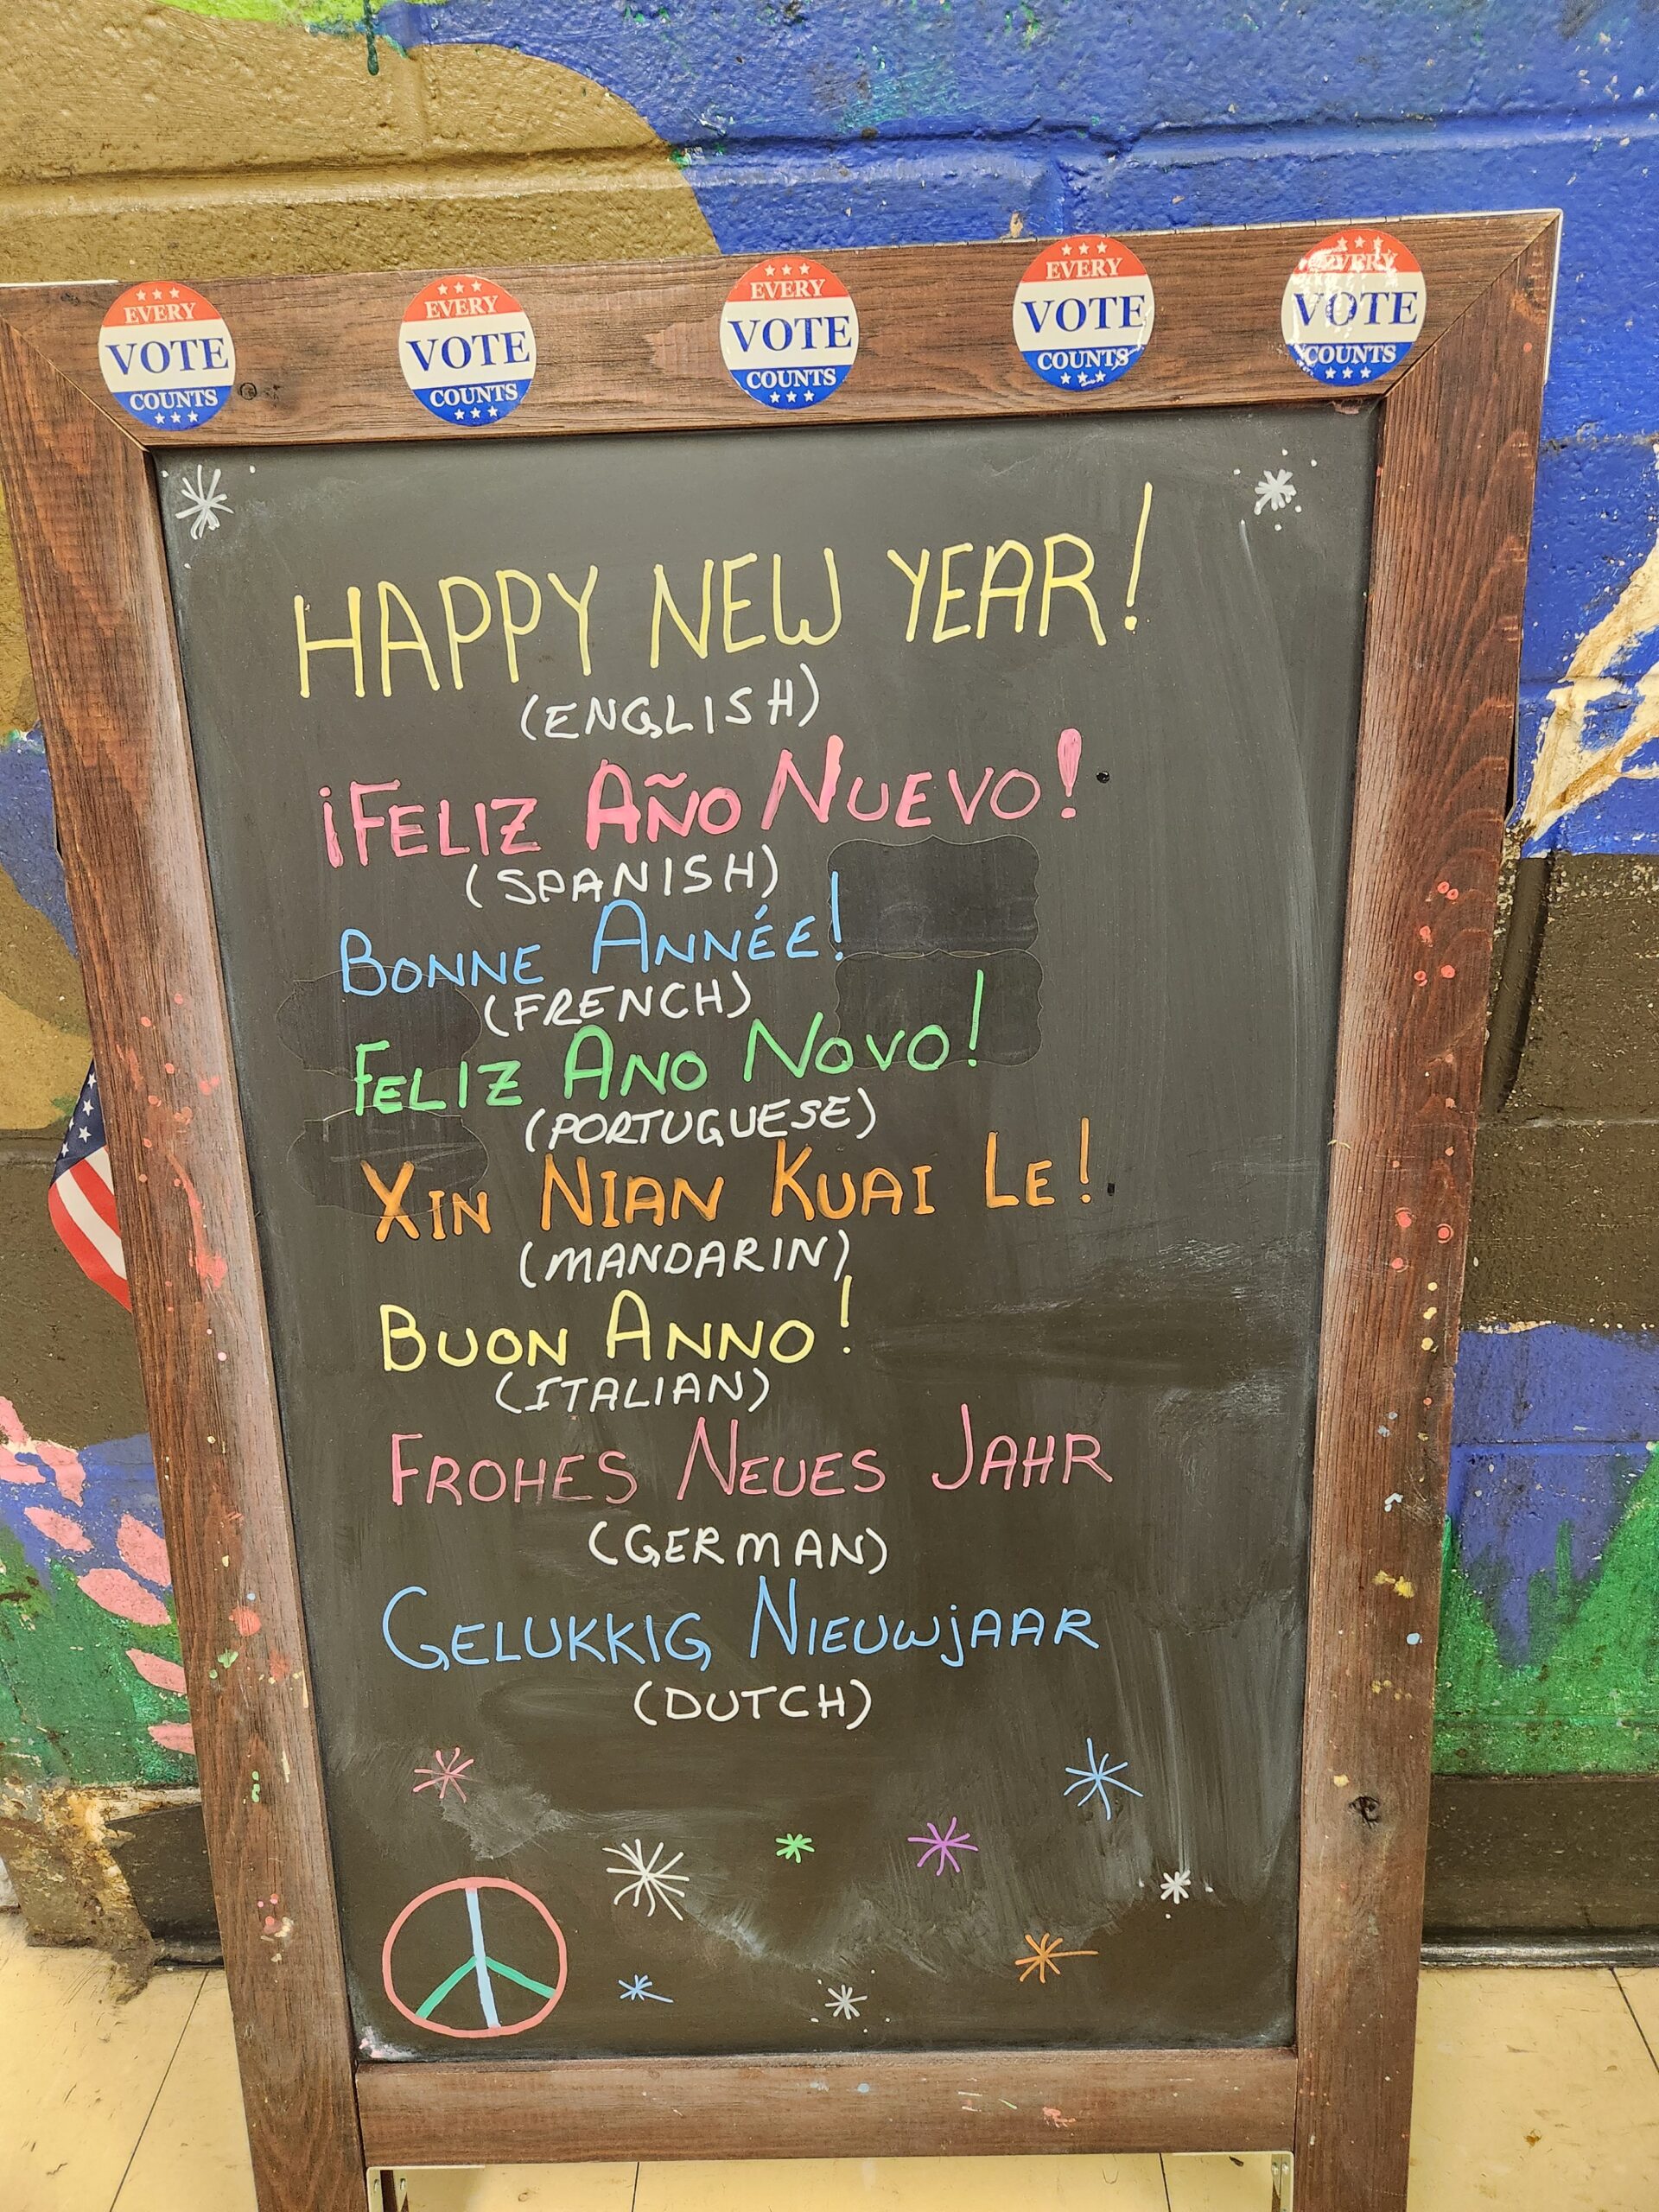 EVERY
VOTE
COUNTS
EVERY
VOTE
COUNTS
EVERY
VOTE
COUNTS
EVERY
VOTE
COUNTS
EVERY
VOTE
COUNTS
HAPPY NEW YEAR!
(ENGLISH)
¡FELIZ AÑO NUEVO!
(SPANISH)
BONNE ANNÉE!
(FRENCH)
FELIZ ANO NOVO!
(PORTUGUESE)
XIN NIAN KUAI LE!
(MANDARIN)
BUON ANNO!
(ITALIAN)
FROHES NEUES JAHR
(GERMAN)
GELUKKIG NIEUWjAAR
(DUTCH)